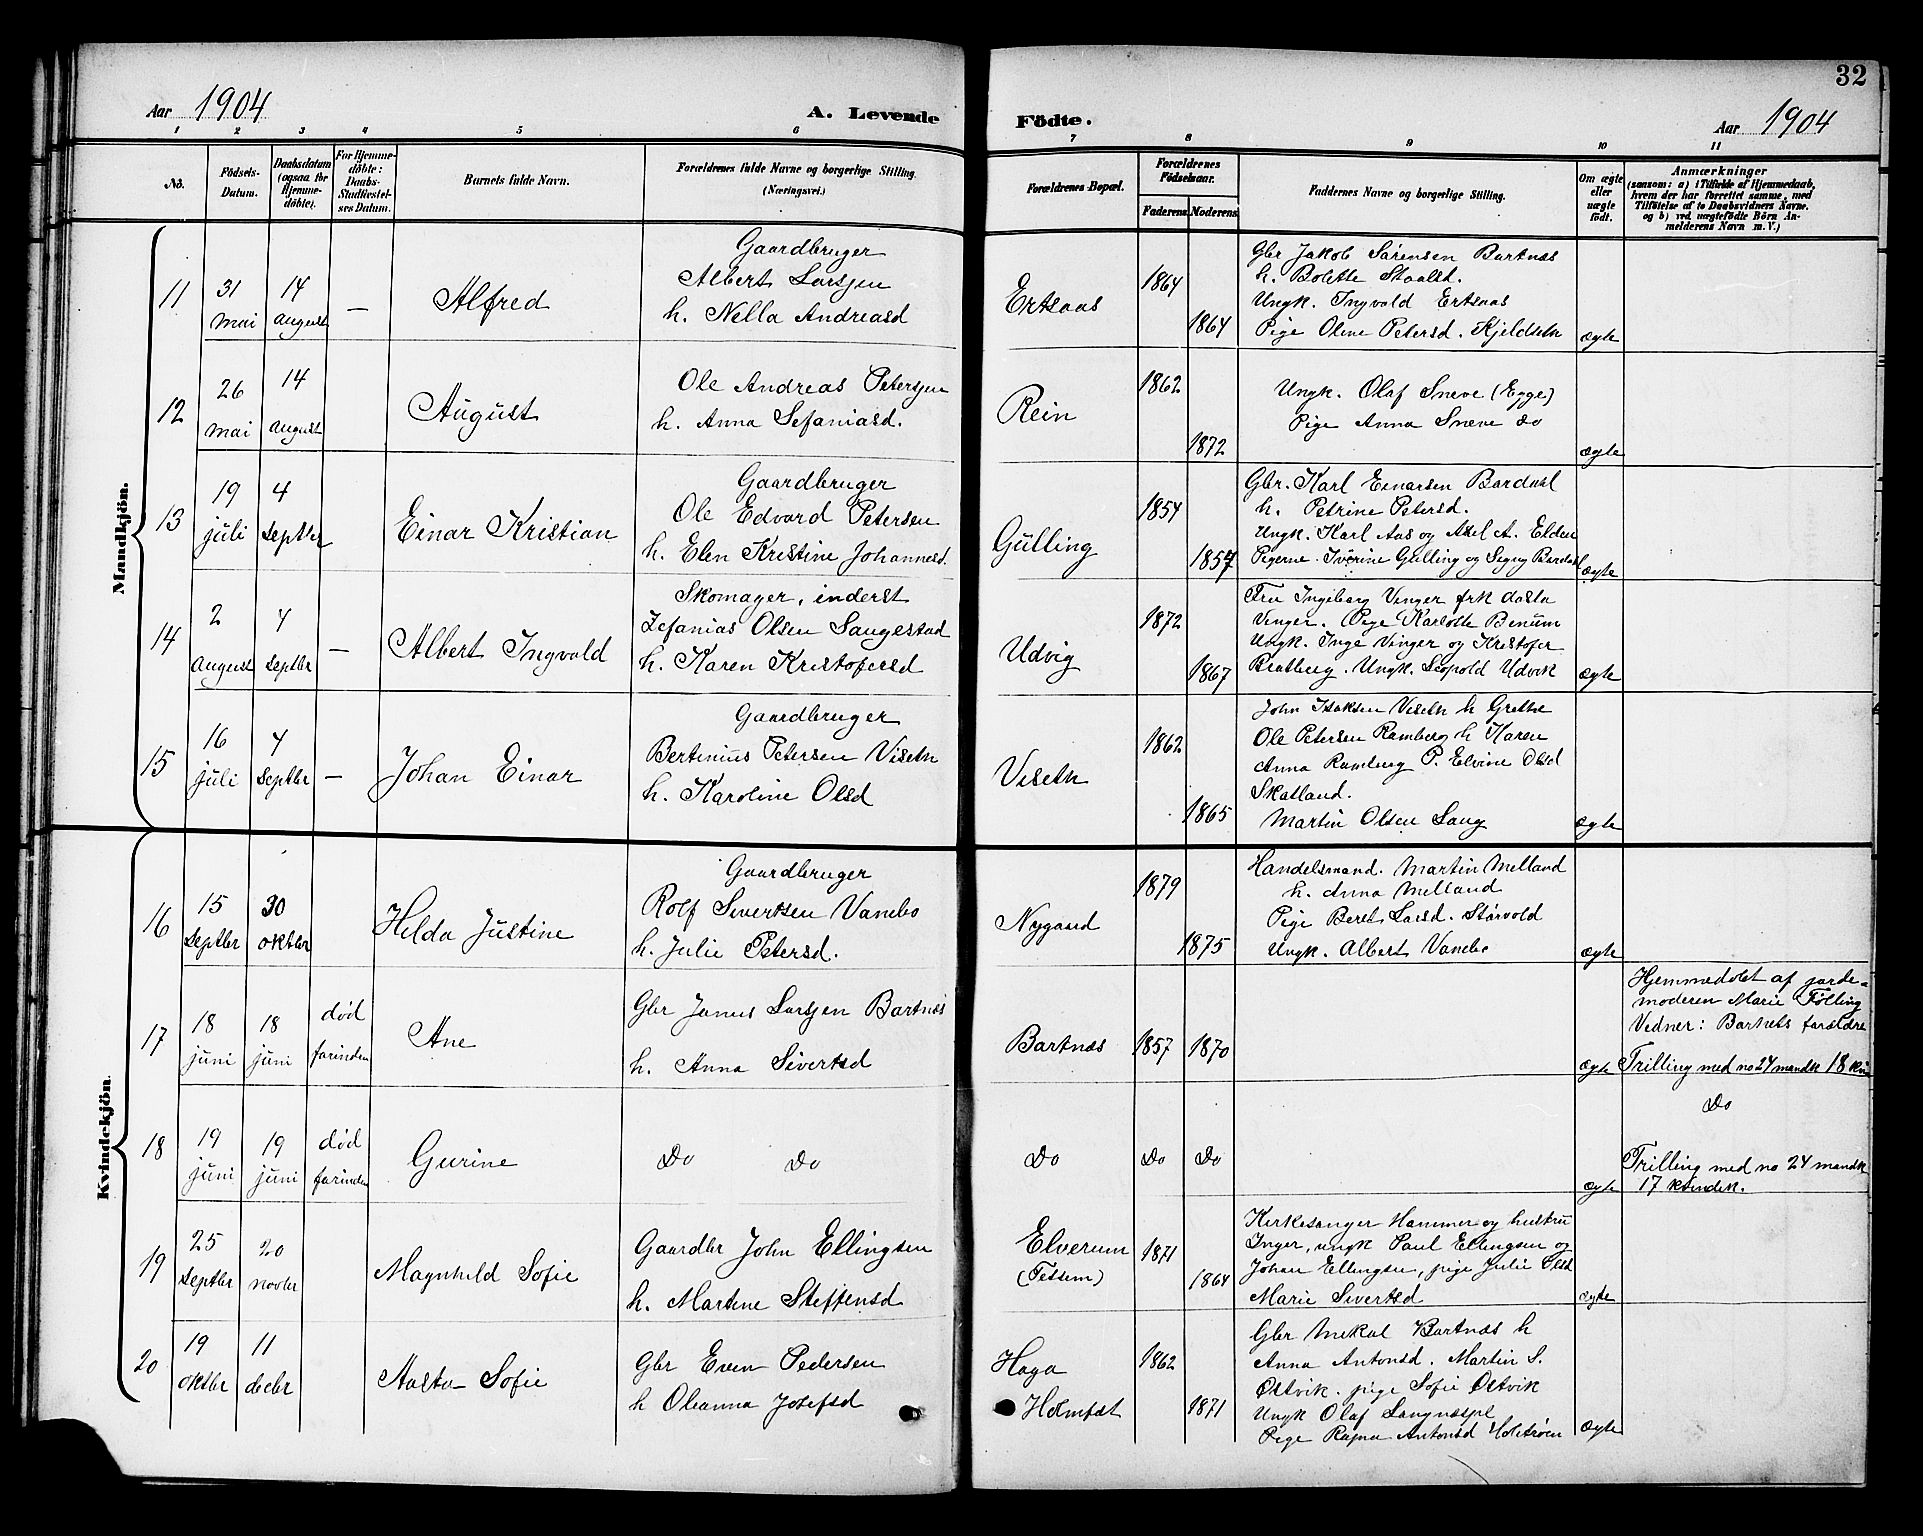 32
Aar 1904
A. Levende Födte.
Aar 1904
1 2 3 4 5 6 7 8 9 10 11
No.
Födsels-Datum.
Daabsdatum (ogsaa for Hjemme-döbte).
For Hjemme-döbte: Daabs-Stadfæstel-ses Datum.
Barnets fulde Navn.
Forældrenes fulde Navne og borgerlige Stilling.
(Næringsvei.)
Forældrenes Bopæl.
Forældrenes Födselsaar.
Faderens. Moderens.
Faddernes Navne og borgerlige Stilling.
Om ægte eller uægte födt.
Anmærkninger
(saasom: a) i Tilfælde af Hjemmedaab,
hvem der har forrettet samme, med
Tilföielse af to Daabsvidners Navne.
og b) ved uægtefödte Börn An-
melderens Navn m. V.)
Mandkjön.
11
31 mai
14 august
—
Alfred
Gaardbruger
Albert Larsen
h. Nella Andreasd
Ertsaas
1864
1864
Gbr Jakob Sørensen Bartnæs
h. Bolette Staalsd.
Ungk. Ingvald Ertsaas
Pige Oline Petersd. Kjeldseth
ægte
12
26 mai
14 august
August
Ole Andreas Petersen
h. Anna Sefaniasd.
Rein
1862
1872
Ungk. Olaf Sneve (Egge)
Pige Anna Sneve do
ægte
13
19 juli
4 Septbr
Einar Kristian
Gaardbruger
Ole Edvard Petersen
h. Elen Kristine Johannesd.
Gulling
1854
1857
Gbr. Karl Einarsen Bardahl
h. Petrine Petersd.
Ungk. Karl Aas og Axel A. Elden
Pigerne. Iverine Gulling og Signy Bardahl
ægte
14
2 August
4 Septbr
—
Albert Ingvald
Skomager, inderst
Zefanias Olsen Saugestad
h. Karen Kristofersd
Udvig
1872
1867
Fru Ingeborg Vinger frk Aasta
Vinger. Pige Karlotte Benum
Ungk. Inge Vinger og Kristofer
Bratberg. Ungk. Leopold Udvik
ægte
15
16 juli
4 Septbr
—
Johan Einar
Gaardbruger
Bertinius Petersen Viseth
h. Karoline Olsd
Viseth
1862
1865
John Isaksen Viseth h Grethe
Ole Petersen Ramberg h Karen
Anna Ramberg P. Elvine Olsd
Skatland.
Martin Olsen Saug
ægte
Kvindekjön.
16
15 Septbr
30 oktbr
Helda Justine
Gaardbruger
Rolf Sivertsen Vanebo
h. Julie Petersd.
Nygaard
1879
1875
Handelsmand. Martin Melland
h. Anna Melland
Pige Beret Larsd. Størvold
Ungk. Albert Vanebo
ægte
17
18 juni
18 juni
død forinden
Ane
Gbr Janus Larsen Bartnæs
h. Anna Sivertsd
Bartnæs
1857
1870
ægte
Hjemmedøbt af jorde-
moderen Marie Følling
Vidner: Barnets forældre
Trilling med no 24 mandk 18 kvin
18
19 juni
19 juni
død forinden
Gurine
Do Do
Do
Do
Do
ægte
Do
Trilling med no 24 mandk
17 kvindek.
19
25 Septbr
20 novbr
Magnhild Sofie
Gaardbr John Ellingsen
h. Martine Steffensd
Elverum
(Tessem)
1871
1864
Kirkesanger Hammer og hustru
Inger, ungk Paul Ellingsen og
Johan Ellingsen, pige Julie Olsd
Marie Sivertsd
ægte
20
19 oktbr
11 decbr
Aasta Sofie
Gbr Even Pedersen
h Oleanna Josefsd
Haga
Holmset
1862
1871
Gbr Mekal Bartnæs h
Anna Antonsd. Martin S.
Østvik. pige Sofie Østvik
Ungk Olaf Langnæspl
Pige Ragna Antonsd
ægte